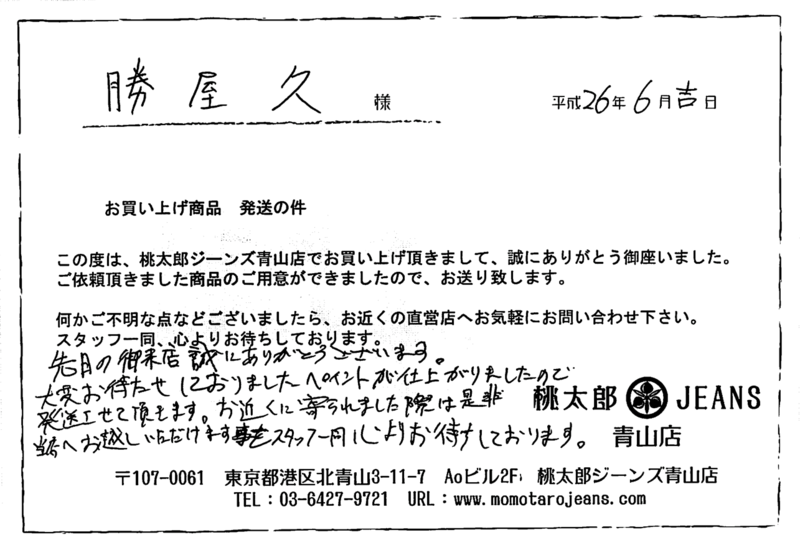 勝屋久 様
平成26年6月吉日
お買い上げ商品 発送の件
この度は、桃太郎ジーンズ青山店でお買い上げ頂きまして、誠にありがとう御座いました。
ご依頼頂きました商品のご用意ができましたので、お送り致します。
何かご不明な点などございましたら、お近くの直営店へお気軽にお問い合わせ下さい。
スタッフ一同、心よりお待ちしております。
先月の御来店誠にありがとうございます。
大変お待たせしておりましたペイントが仕上がりましたので
発送させて頂きます。お近くに寄られました際は是非
当店へお越しいただけます事をスタッフ一同心よりお待ちしております。
桃太郎 JEANS
青山店
〒107-0061 東京都港区北青山3-11-7 Aoビル2F 桃太郎ジーンズ青山店
TEL：03-6427-9721 URL：www.momotarojeans.com